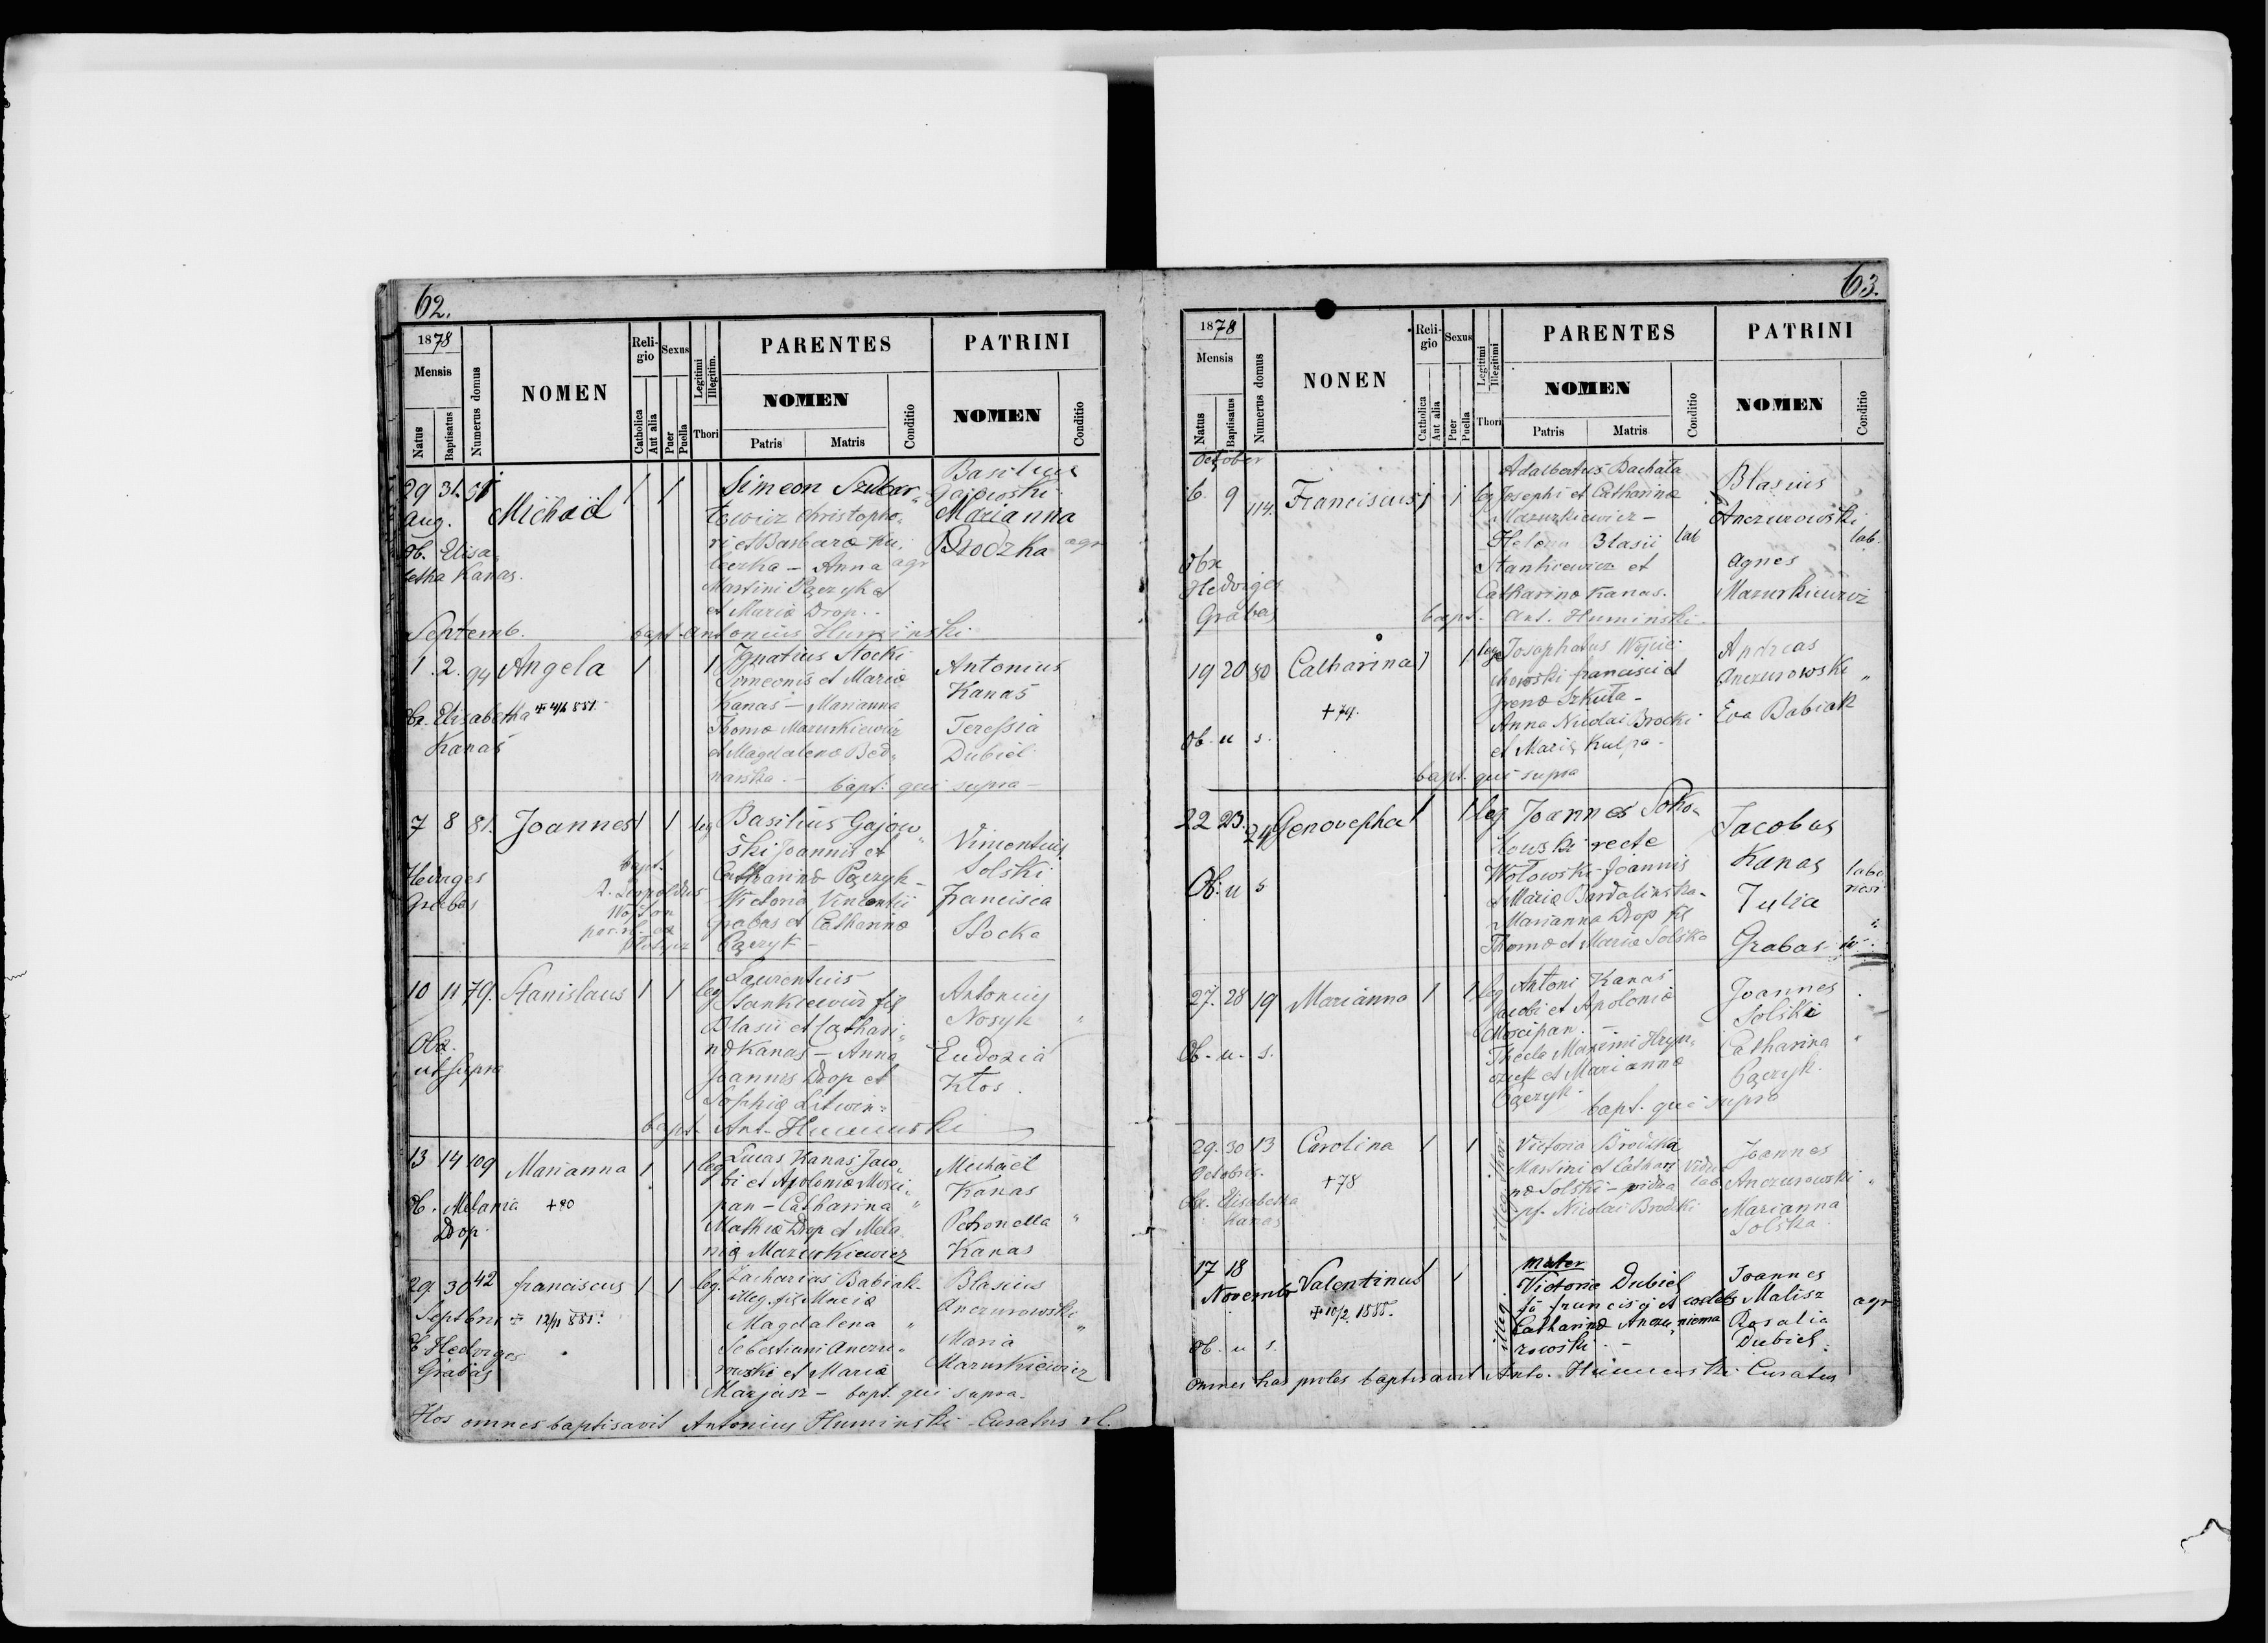 62.
1878
Mensis
Natus
Baptisatus
Numerus domus
NOMEN
Religio
Catholica
Aut alia
Sexus
Puer
Puella
Legitimi
Illegitim.
Thori
PARENTES
NOMEN
Patris
Matris
Conditio
PATRINI
NOMEN
Conditio
29 31. Michaël 1 1 Simeon Szuber= Basilius
Aug. tewicz Christopho= Gajowski
Ob. Elisa= ri et Barbara Ku= Marianna
betha Kanas. Anna agr Brodzka agr
Martini Pączyk et
et Maria Drop..
Septemb. bapt. Antonius Huminski
1. 2. 94 Angela 1 1 Ignatius Stocki Antonius
Simeonis et Maria Kanaś
Obx. Elizabetha Kanas – Marianna
Kanaś Thoma Mazurkiewicz Teressia
et Magdalena Bed= Dubiel
narska. – bapt. qui supra –
7 8 81. Joannes 1 1 leg Basilius Gajow=
ski Joannis et Vincentius
Hedviges bapt. Catharina Pączyk – Solski
Grabas Leopoldus Victoria Vincentii Francisca
Grabas et Catharina Stocka
Pączyk –
10 11 79. Stanislaus 1 1 leg Laurentius
Stankiewicz fil Antonius
Blasii et Cathari= Nosyk "
Obx. na Kanas – Anna Eudoxia
ut supra Joannis Drop et Kłos.
Sophia Litwin=
bapt. Ant. Huminski
13 14 109 Marianna 1 1 leg Lucas Kanas Jaco= Michaël
bi et Apolonia Mosci= Kanas
Ob. Melania +80 pan – Catharina " Petronella "
Drop Mathia Drop et Mela= Kanas
nia Mazurkiewicz
29. 30 42 franciscus 1 1 leg. Zacharias Babiak Blasius
Septbris + 12/11 881. illeg. fil Maria Anczurowski
Magdalena " Maria "
Ob Hedviges Sebestiani Anczu= Mazurkiewicz
Grabas rowski et Maria
Marjasz – bapt. qui supra.
Hos omnes baptisavit Antonius Huminski – Curatus
63.
1878
Mensis
Natus
Baptisatus
Numerus domus
NONEN
Religio
Catholica
Aut alia
Sexus
Puer
Puella
Legitimi
Illegitimi
Thori
PARENTES
NOMEN
Patris
Matris
Conditio
PATRINI
NOMEN
Conditio
October Adalbertus Bachata
6 9 114. Franciscus 1 1 leg Josephi et Catharina Blasius
Mazurkiewicz – Anczurowski
Helena Blasii lab lab.
Obx Stankiewicz et Agnes
Hedviges Catharina Kanas. Mazurkiewicz
Grabas bapt. Ant. Huminski.
19 20 80 Catharina 1 1 leg Josaphatus Wojcie= Andreas
chowski francisci et Anczurowski "
+79. Irena Szkuta –
Anna Nicolai Brocki Eva Babiak
Ob. u s. et Maria Kulpa –
bapt. qui supra
22 23. 24 Genovepha 1 1 leg Joannes Soko= Jacobus
łowski recte Kanas
Ob. u s Wołowski Joannis
et Maria Bardalinska Julia
Marianna Drop fil
Thoma et Maria Solska Grabas
27. 28 19 Marianna 1 1 leg Antoni Kanaś Joannes
Jacobi et Apolonia Solski
Moscipan. – Catharina "
Ob. u. s. Thecla Maximi Hryn=
et Marianna Pączyk.
Pączyk. bapt. qui supra
29. 30 13 Carolina 1 1 illeg. thori Victoria Brodzka Joannes
Octobris. Martini et Cathari Vidua Anczurowski "
+78 na Solski – vidua lab
Ob. Elisabetha p. Nicolai Brodzki Marianna
Kanas Solska
17 18 mater
Novemb. Valentinus 1 1 illeg. Victoria Dubiel Joannes
+ 10/2. 1888. fa francisci et Malisz agr
Catharina Anczu= Rosalia
Ob. u s. rowski. – Dubiel.
Omnes has proles baptisavit Anto. Huminski Curatus